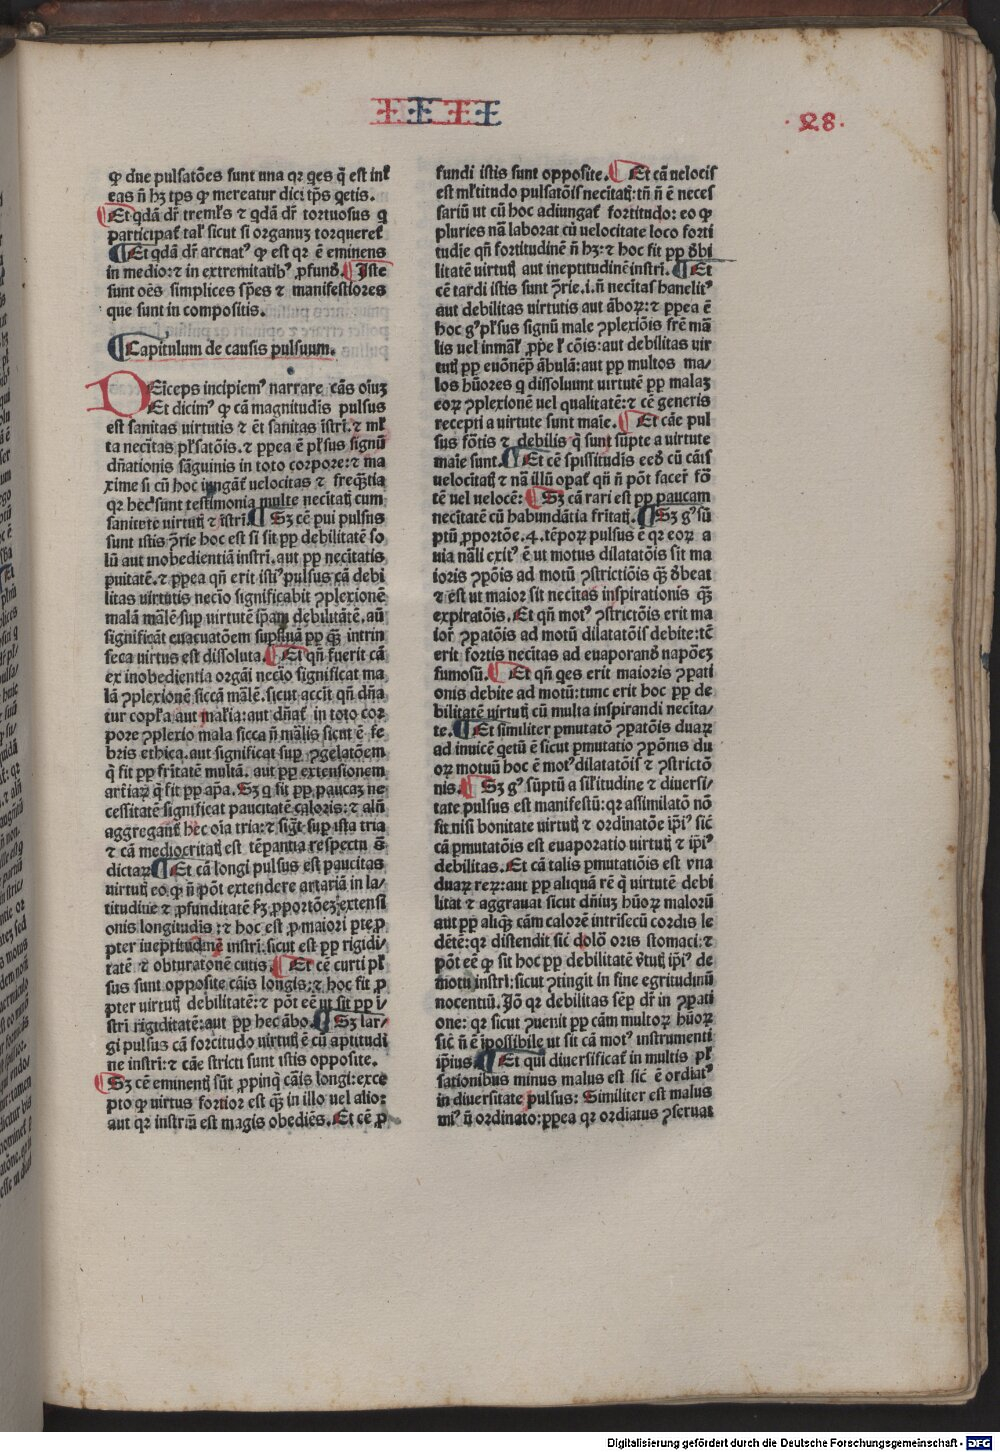 ꝙ due pulsatões sunt una qꝛ ꝗes q̃ est inẗ
eas ñ hꝫ tp̃s ꝙ mereatur dici tp̃s ꝗetis.
¶Et ꝗdã dr̃ tremĺs ⁊ ꝗdã dr̃ tortuosus ꝗ
participat̃ tal̃ sicut si organuꝫ torqueret̃
¶Et ꝗdã dr̃ arcuatꝰ ꝙ est qꝛ ẽ eminens
in medio:⁊ in extremitatibꝰ ꝓfunꝺꝰ.¶Iste
sunt oẽs simplices sp̃es ⁊ manifestiores
que sunt in compositis.
¶Capitulum de causis pulsuum.
DEĩceps incipiemꝰ narrare cãs oĩuꝫ
Et dicimꝰ ꝙ cã magnitudĩs pulsus
est sanitas virtutis ⁊ ẽt sanitas ĩstr̃i.⁊ ml̃
ta necĩtas pl̃satõis.⁊ ꝓpea ẽ pl̃sus signũ
dñationis sãguinis in toto corpore:⁊ ma
xime si cũ hoc iungat̃ uelocitas ⁊ freq̃ꝫtia
qꝛ hec sunt testimonia multe necĩtatꝭ cum
sanitate virtutꝭ ⁊ ĩstr̃i.¶Sꝫ cẽ pui pulsus
sunt istis ꝯ̃rie hoc est si sit ꝓp debilitatẽ so
lũ aut inobedientiã instr̃i.aut ꝓp necĩtatis
puitatẽ.⁊ ꝓpea qñ erit istiꝰ pulsus cã debi
litas virtutis necĩo significabit ꝯplexionẽ
malã mãlẽ sup virtutẽ ip̃am debilitãtẽ.aũ
significãt euacuatõem supfluã ꝓp quã intrin
seca virtus est dissoluta.¶Et qñ fuerit cã
ex inobedientia orgãi necĩo significat ma
lã ꝯplexionẽ siccã mãlẽ.sicut accĩt qñ dñã
tur copl̃a aut mal̃ia:aut dñat̃ in toto cor
pore ꝯplexio mala sicca ñ mãlis sicut ẽ fe
bris ethica.aut significat sup ꝯgelatõem
q̃ fit ꝓp fr̃itatẽ multã. aut ꝓp extensionem
art̃iaꝝ q̃ fit ꝓp ap̃a.Sꝫ ꝗ fit ꝓp paucaꝫ ne
cessitatẽ significat paucitatẽ caloris:⁊ aln̄
aggregant̃ hec oĩa tria:⁊ sigt̃ sup ista tria
⁊ cã mediocritatꝭ est tẽpantia respectu s̃
dictaꝝ¶Et cã longi pulsus est paucitas
virtutꝭ eo ꝙ ñ põt extendere artariã in la/
titudine ⁊ ꝓfunditatẽ ẜꝫ ꝓportõeꝫ extensi
onis longitudĩs:⁊ hoc est ꝓ maiori pte ꝓ
pter ineptitudinẽ instr̃i:sicut est ꝓp rigidi/
tatẽ ⁊ obturationẽ cutis.¶Et cẽ curti pl̃
sus sunt opposite cãis longis:⁊ hoc fit ꝓ
pter virtutꝭ debilitatẽ:⁊ põt eẽ ut sit ꝓp i/
str̃i rigiditatẽ:aut ꝓp hec ãbo.¶Sꝫ lar/
gi pulsus cã fortitudo virtutꝭ ẽ cũ aptitudi
ne instr̃i:⁊ cãe stricti sunt istis opposite.
¶Sꝫ cẽ eminentꝭ sũt ꝓpinq̃ cãis longi:exce
pto ꝙ virtus fortior est quã in illo uel alio:
aut qꝛ instrm̃ est magis obediẽs.Et cẽ ꝓ
fundi istis sunt opposite.¶Et cã uelocis
est ml̃titudo pulsatõis necĩtatꝭ:tñ ñ ẽ neces
sariũ ut cũ hoc adiungat̃ fortitudo:eo ꝙ
pluries nã laborat cũ uelocitate loco forti
tudie qñ fortitudinẽ ñ hꝫ:⁊ hoc fit ꝓp ꝺ̃bi
litatẽ virtutꝭ aut ineptitudinẽ instr̃i.¶Et
cẽ tardi istis sunt ꝯ̃rie.i.ñ necĩtas hanelitꝰ
aut debilitas virtutis aut ãboꝝ:⁊ ꝓpea ẽ
hoc gͦ pl̃sus signũ male ꝯplexiõis fr̃e mã
lis uel inmãl̃ ꝓp̃e l̃ cõis:aut debilitas vir
tutꝭ ꝓp euõnẽp̃ ãbulã:aut ꝓp multos ma/
los hũores ꝗ dissoluunt virtutẽ ꝓp malaꝫ
eoꝝ ꝯplexionẽ uel qualitatẽ:⁊ cẽ generis
recepti a virtute sunt maĩe.¶Et cãe pul
sus fõtis ⁊ debilis q̃ sunt sũpte a virtute
maĩe sunt.¶Et cẽ spissitudĩs eeꝺ̃ cũ cãis
uelocitatꝭ ⁊ nã illũ opat̃ qñ ñ põt facer̃ fõ
tẽ uel uelocẽ:¶Sꝫ cã rari est ꝓp paucam
necĩtatẽ cũ habundãtia fr̃itatꝭ.¶Sꝫ gͦ sũ
ptũ ꝓportõe.4.tẽpoꝝ pulsus ẽ qꝛ eoꝝ a
uia nãli exitꝰ ẽ ut motus dilatatõis sit ma
ioris ꝓ̃põis ad motũ ꝯstrictiõis quã ꝺ̃beat
⁊ est ut maior sit necĩtas inspirationis quã
expiratõis.Et qñ motꝰ ꝯstrictõis erit ma
ior̃ ꝓpatõis ad motũ dilatatõis debite:tẽ
erit fortis necĩtas ad euaporanꝺ̃ uapõeꝫ
fumosũ.¶Et qñ ꝗes erit maioris ꝓpati
onis debite ad motũ:tunc erit hoc ꝓp de
bilitatẽ uirtutꝭ cũ multa inspirandi necĩta/
te.¶Et similiter pmutatõ ꝓpatõis duaꝝ
ad inuicẽ ꝗetũ ẽ sicut pmutatio ꝓpõnis du
oꝝ motuũ hoc ẽ motꝰ dilatatõis ⁊ ꝯstrictõ
nis.¶Sꝫ gͦ sũptũ a sil̃itudine ⁊ diuersi/
tate pulsus est manifestũ:qꝛ assimilatõ nõ
fit nisi bonitate virtutꝭ ⁊ ordinatõe ip̃iꝰ sic̃
cã pmutatõis est euaporatio virtutꝭ ⁊ ip̃iꝰ
debilitas.Et cã talis pmutatõis est vna
duaꝝ reꝝ:aut ꝓp aliquã rẽ q̃ virtutẽ debi
litat ⁊ aggrauat sicut dñiuꝫ hũoꝝ maloꝝ
aut ꝓp aliquã cãm calorẽ intrisecũ cordis le
dẽtẽ:qꝛ distendit sic̃ dolõ oris stomaci:⁊
põt eẽ ꝙ sit hoc ꝓp debilitatẽ v̊tutꝭ ip̃iꝰ de
motu instr̃i:sicut ꝯtingit in fine egritudinũ
nocentiũ.Iõ qꝛ debilitas sẽp dr̃ in ꝓpati
one:qꝛ sicut ꝓuenit ꝓp cãm multoꝝ hũoꝝ
sic̃ ñ ẽ ĩpossibile ut sit cã motꝰ instrumenti
ip̃ius.¶Et qui diuersificat̃ in multis pl̃
sationibus minus malus est sic̃ ẽ ordiatꝰ
in diuersitate pulsus: Similiter est malus
miꝰ ñ ordinato:ꝓpea qꝛ ordiatus ꝯseruat
.28.
Digitalisierung gefördert durch die Deutsche Forschungsgemeinschaft - DFG